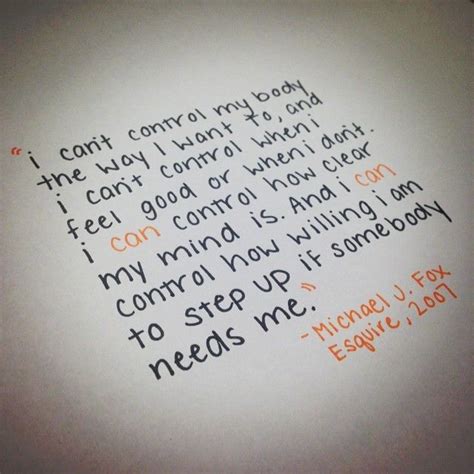 "i can't control my body
the way I want to, and
i can't control when i
feel good or when i don't.
i can control how clear
my mind is. And i can
control how willing i am
to step up if somebody
needs me."
-Michael J. Fox
Esquire, 2007